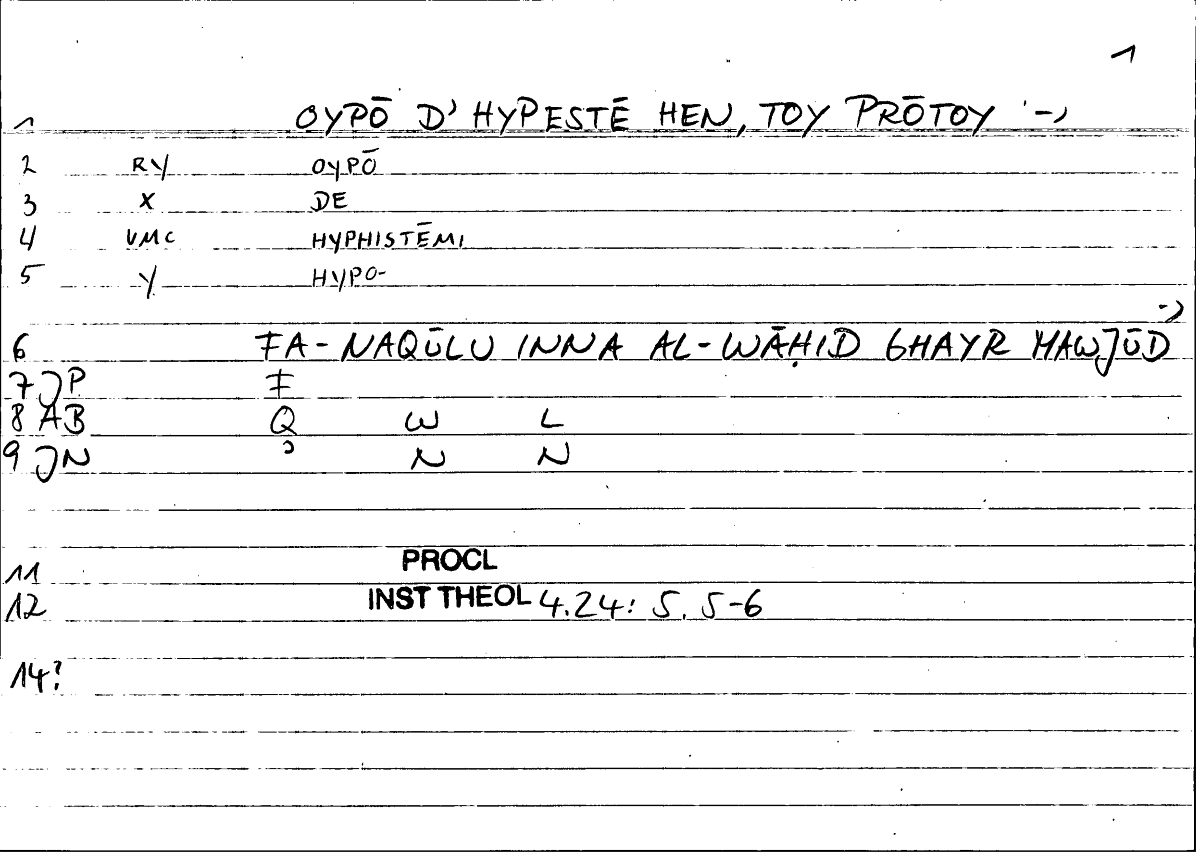 1
1 OYPŌ D' HYPESTĒ HEN, TOY PRŌTOY '->
2 RY OYPŌ
3 X DE
4 VMC HYPHISTĒMI
5 Y HYPO-
->
6 FA-NAQŪLU INNA AL-WĀḤID GHAYR MAWJŪD
7 JP F
8 AB Q W L
9 JN ʾ N N
11 PROCL
12 INST THEOL 4.24: 5.5-6
14?